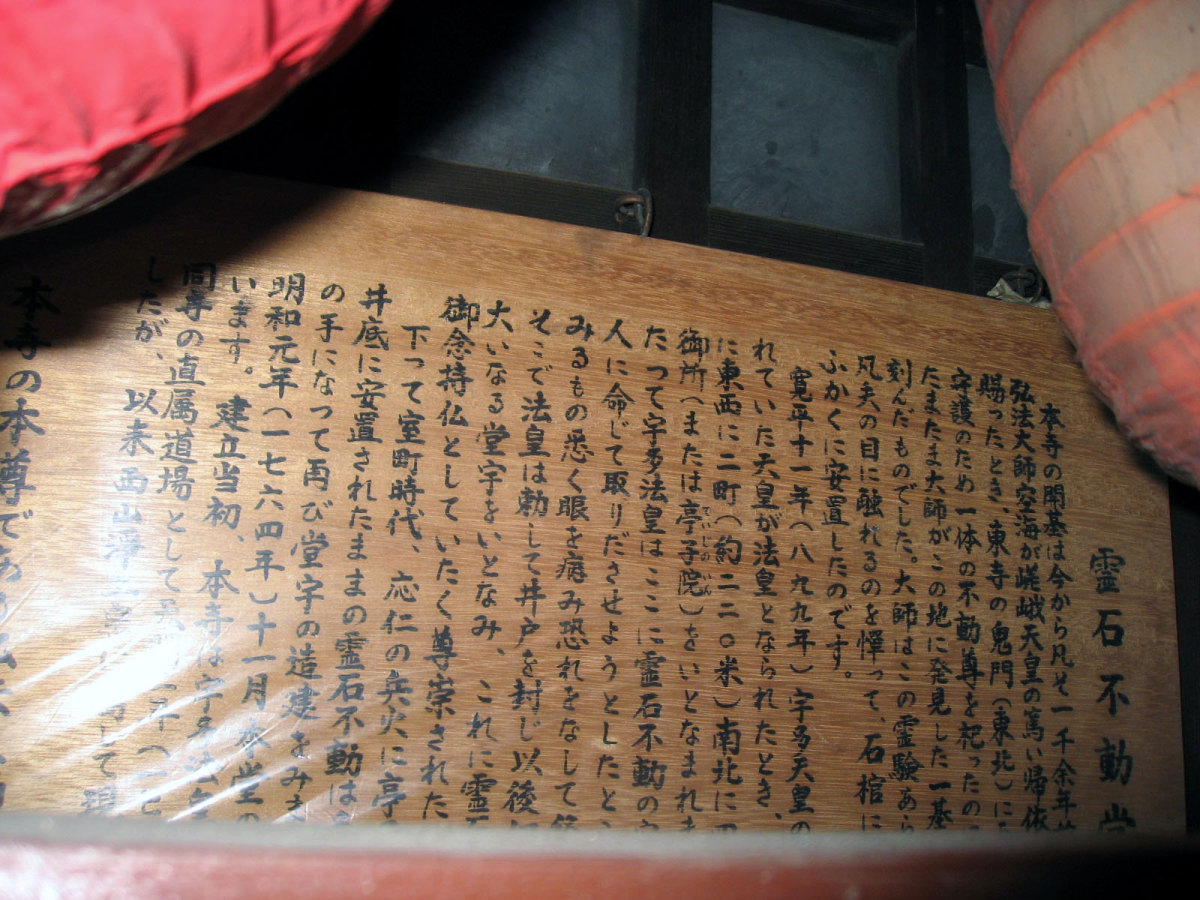 霊石不動堂
本寺の開基は今から凡そ一千余年
弘法大師空海が嵯峨天皇の篤い帰依
賜ったとき、東寺の鬼門（東北）に
守護のため一体の不動尊を祀ったの
たまたま大師がこの地に発見した一基
刻んだものでした。大師はこの霊験あら
凡夫の目に触れるのを憚って、石棺に
ふかくに安置したのです。
寛平十一年（八九九年）宇多天皇の
れていた天皇が法皇となられたとき、
に東西に二町（約二二〇米）南北に四
御所（または亭子院）をいとなまれま
ていしのいん
たって宇多法皇はここに霊石不動の
人に命じて取りださせようとしたとこ
みるもの悉く眼を病み恐れをなして
そこで法皇は勅して井戸を封じ以後
大いなる堂宇をいとなみ、これに霊石
御念持仏としていたく尊崇された
下って室町時代、応仁の兵火に亭
井底に安置されたままの霊石不動は
の手になって再び堂宇の造建をみま
明和元年（一七六四年）十一月本堂の
います。建立当初、本寺は宇多法皇
同尊の直属道場として
したが、以来西山浄 して現
本寺の本尊である